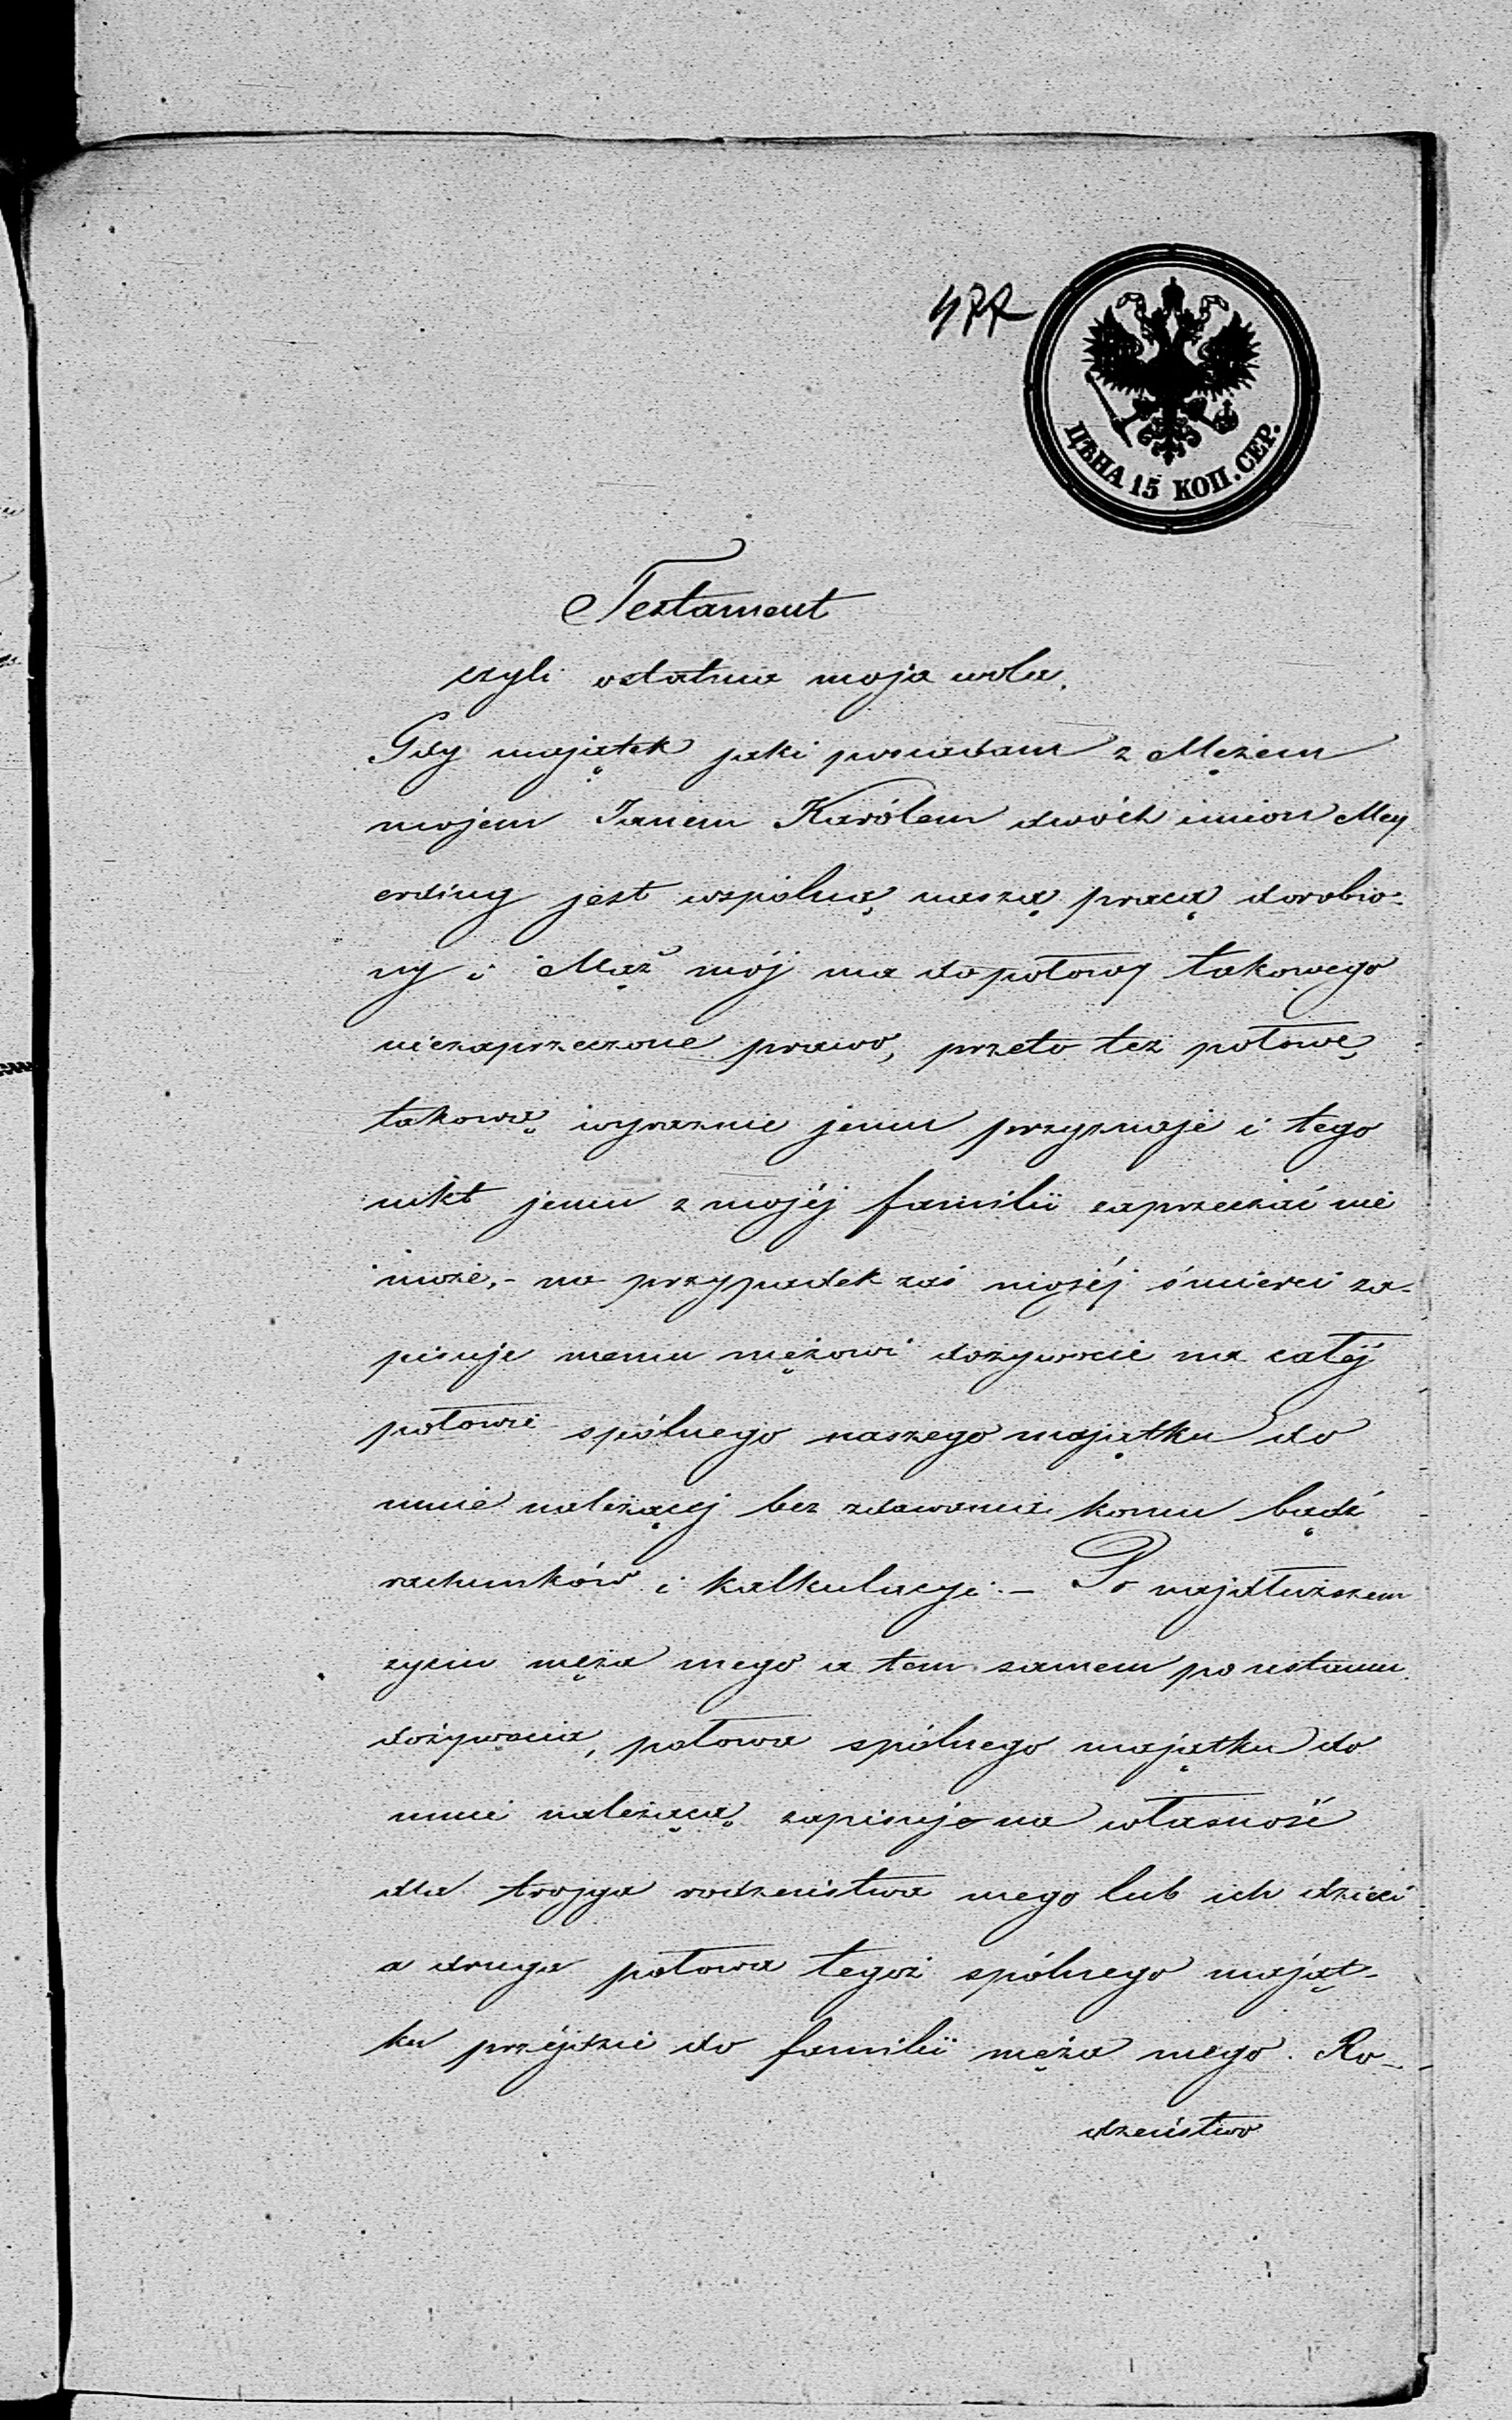 ЦѢНА 15 КОП. СЕР.
Testament
czyli ostatnia moja wola.
Gdy majątek jaki posiadam z Mężem
mojem Janem Karólem dwóch imion Mey
erding jest wspólną naszą pracą dorobio-
ny i Mąż mój ma do połowy takowego
niezaprzeczone prawo, przeto też połowę
takową wyraznie jemu przyznaję i tego
nikt jemu z mojéj familii zaprzeczać nie
może,- na przypadek zaś mojéj śmierci za-
pisuje memu mężowi dożywocie na całéj
połowie spólnego naszego majątku do
mnie należącej bez zdawania komu bądź
rachunków i kalkulacyi.- Po najdłuższem
życiu męża mego a tem samem po ustaniu
dożywocia, połowa spólnego majątku do
mnie należącą zapisuje na własność
dla trojga rodzeństwa mego lub ich dzieci
a druga połowa tegoż spólnego mająt-
ku przejdzie do familii męża mego. Ro-
dzeństwo